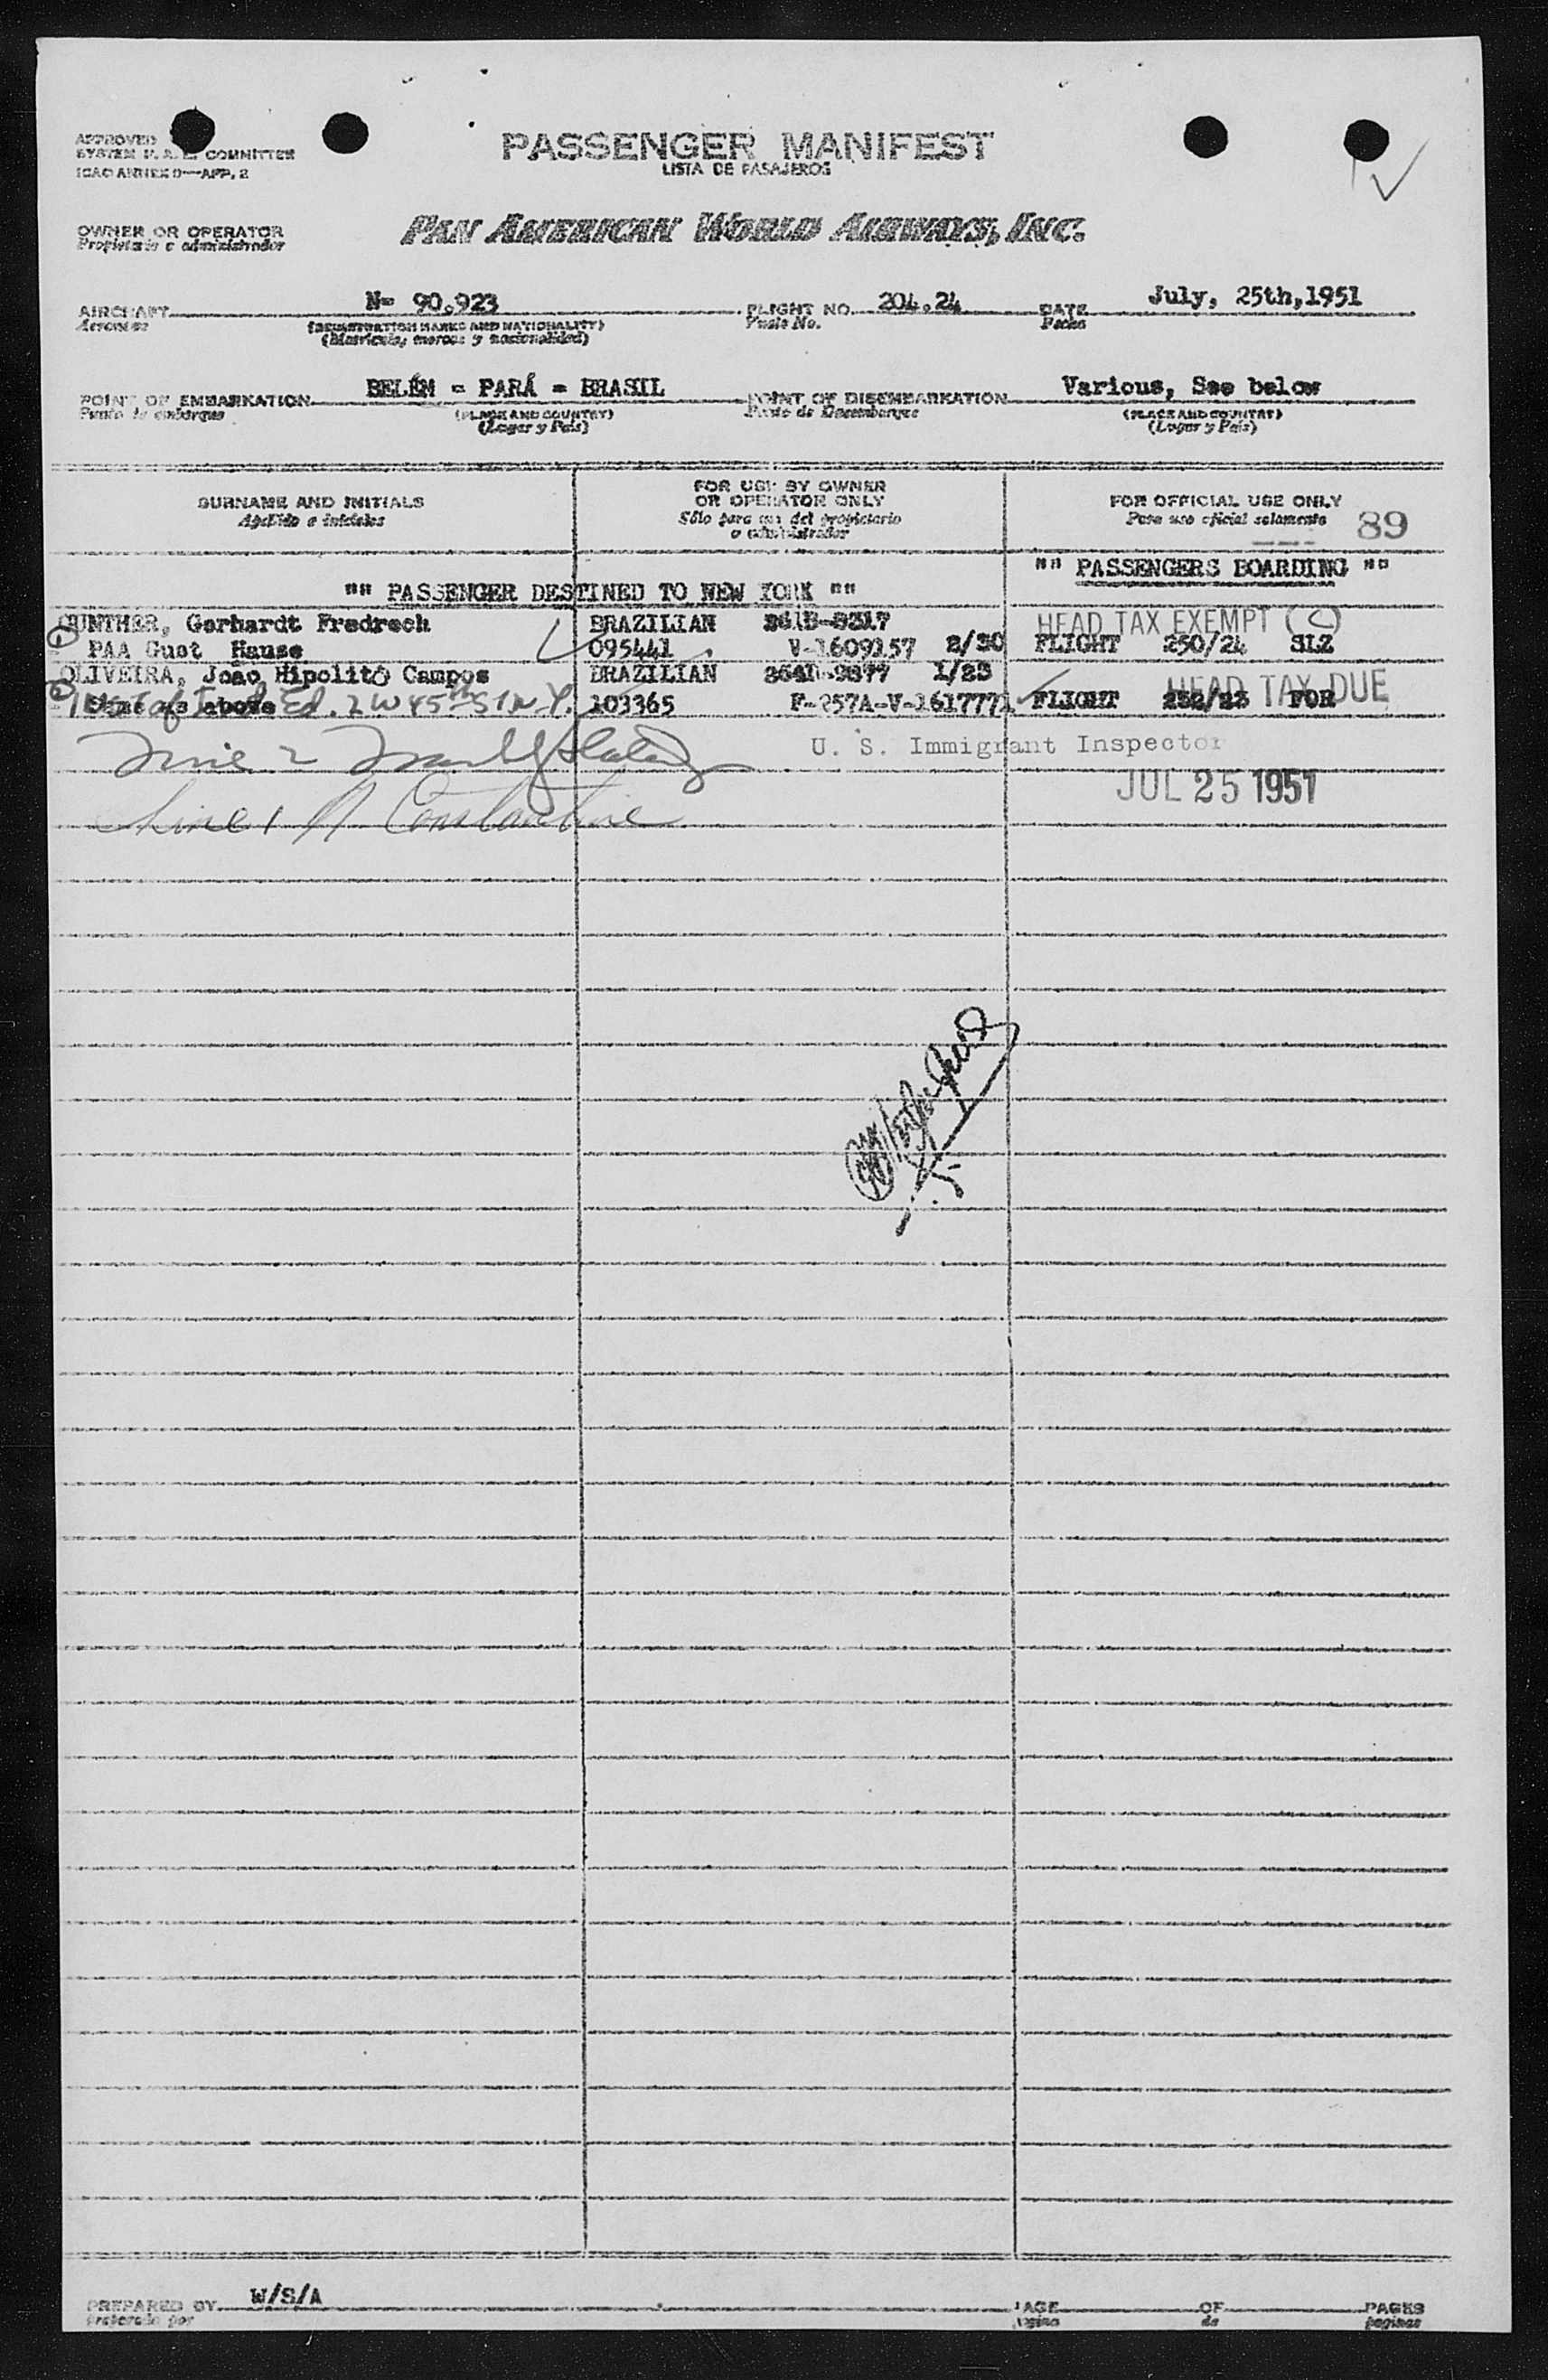 APPROVED
SYSTEM COMMITTEE
ICAO ANNEX 9—APP. 2
PASSENGER MANIFEST
LISTA DE PASAJEROS
OWNER OR OPERATOR
Propietario o administrador
PAN AMERICAN WORLD AIRWAYS, INC.
AIRCRAFT N- 90.923 FLIGHT NO. 204.24 DATE July, 25th, 1951
Aeronave (REGISTRATION MARKS AND NATIONALITY) Vuelo No. Fecha
(Matricula, marcas y nacionalidad)
POINT OF EMBARKATION BELÉM - PARÁ - BRASIL POINT OF DISEMBARKATION Various, See below
Punto de embarque (PLACE AND COUNTRY) Punto de Desembarque (PLACE AND COUNTRY)
(Lugar y Pais) (Lugar y Pais)
SURNAME AND INITIALS FOR USE BY OWNER OR OPERATOR ONLY FOR OFFICIAL USE ONLY
Apellido e iniciales Sólo para uso del propietario o administrador Para uso oficial solamente 89
"" PASSENGERS BOARDING ""
"" PASSENGER DESTINED TO NEW YORK ""
1 GUNTHER, Gerhardt Fredrech BRAZILIAN HEAD TAX EXEMPT (C)
PAA Gust Hause 095441 V-1609157 2/30 FLIGHT 250/24 SLZ
2 OLIVEIRA, João Hipolito Campos BRAZILIAN 1/23 HEAD TAX DUE
Same as above Inst of Ed. 2 W 45th St N.Y. 103365 F-257A-V-1617771 FLIGHT 252/23 FOR
Line 2
U. S. Immigrant Inspector
JUL 25 1951
Line 1 Constantine
PREPARED BY W/S/A PAGE OF PAGES
Preparado por Pagina de paginas